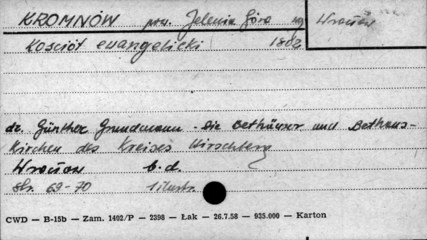 KROMNÓW pow. Jelenia Góra
Wrocław
Kościół ewangelicki 1802
dr. Günther Grundmann - Die Bethäuser und Bethaus-
kirchen des Kreises Hirschberg
Wrocław b.d.
str. 69-70 1 ilustr.
CWD — B-15b — Zam. 1402/P — 2398 — Łak — 26.7.58 — 935.000 — Karton